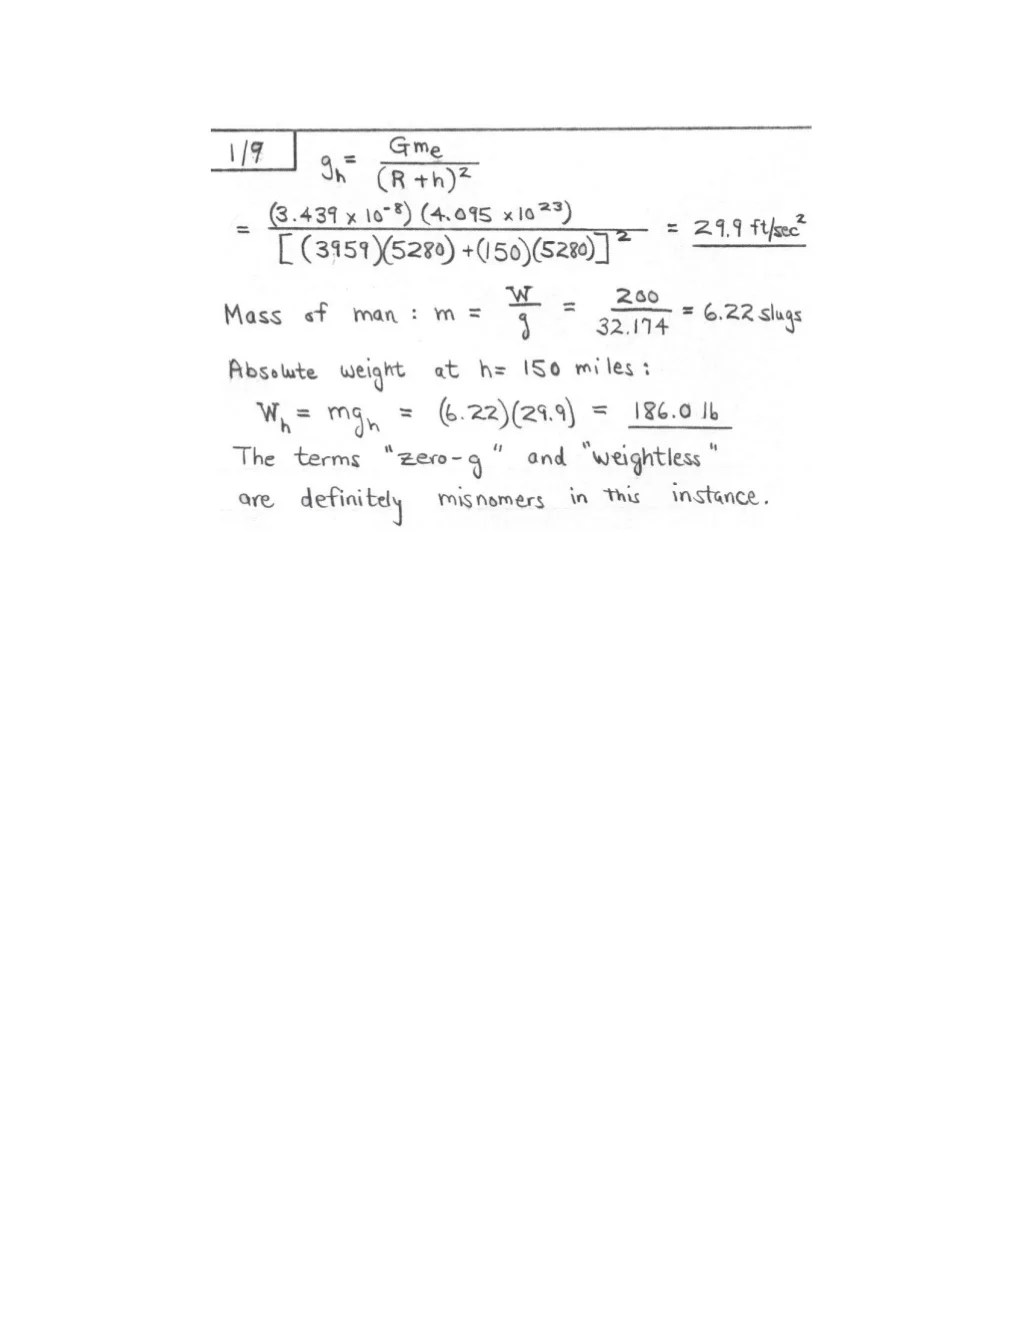 1/9
g_h = Gm_e / (R + h)²
= (3.439 x 10⁻⁸) (4.095 x 10²³) / [(3959)(5280) + (150)(5280)]² = 29.9 ft/sec²
Mass of man : m = W/g = 200/32.174 = 6.22 slugs
Absolute weight at h = 150 miles :
W_h = mg_h = (6.22)(29.9) = 186.0 lb
The terms "zero-g" and "weightless"
are definitely misnomers in this instance.